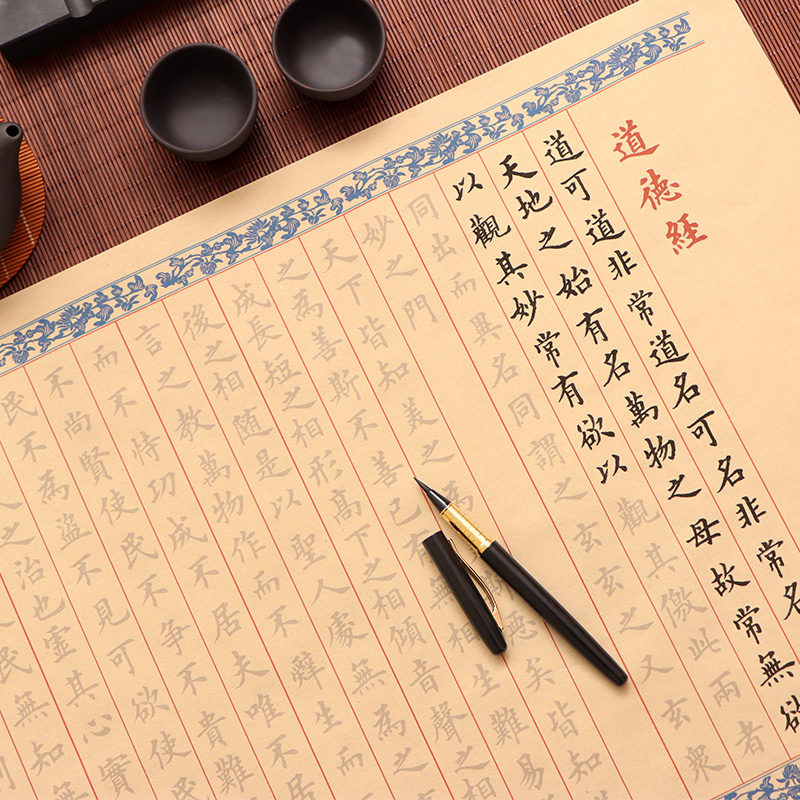 道德經
道可道非常道名可名非常名
天地之始有名萬物之母故常無欲
以觀其妙常有欲以觀其徼此兩者
同出而異名同謂之玄玄之又玄眾
妙之門
天下皆知美之為矣皆知
之為善斯不善已有無相生難易
成長短之相形高下之相傾音聲之
後之相随是以聖人處無為之
言之教萬物作而不辭生而
而不恃功成不居夫唯不
不尚賢使民不爭不貴難
民不為盜不見可欲使民
之治也虛其心實
民無知